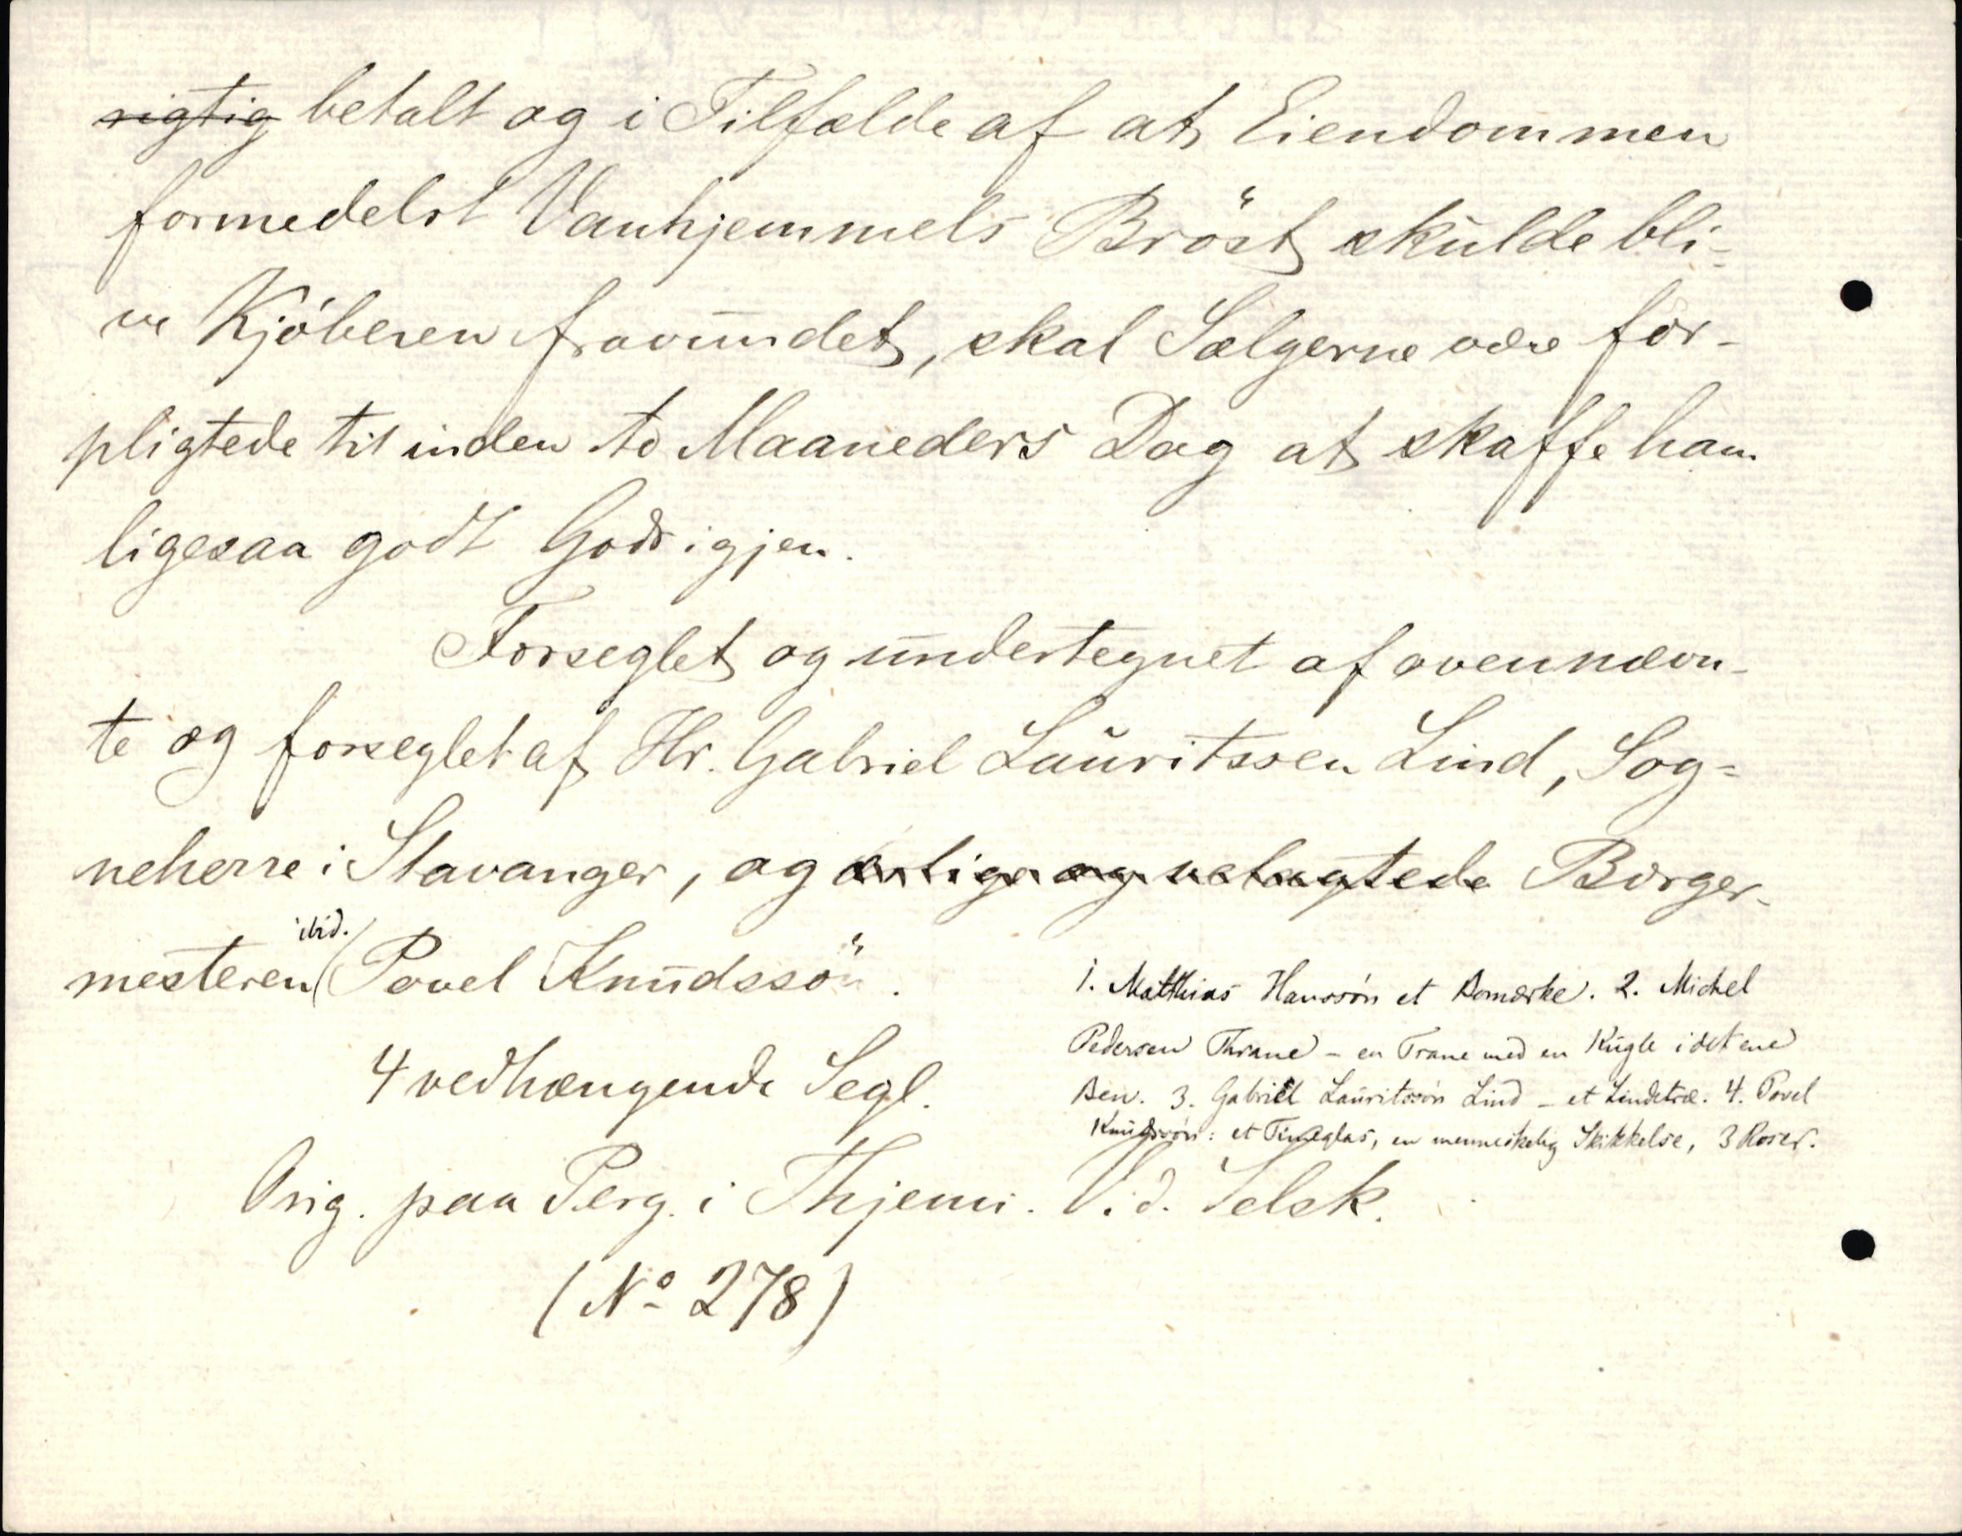 rigtig betalt og i Tilfælde af at Eiendommen
formedelst Vanhjemmels Bröst skulde bli-
ve Kjöberen fravundet, skal Sælgerne være for-
pligtede til inden to Maaneders Dag at skaffe ham
ligesaa godt Gods igjen.
Forseglet og undertegnet af ovennævn-
te og forseglet af Hr. Gabriel Lauritssen Lind, Sog=
neherre i Stavanger, og ærlige og velagtede Borger-
mesteren ibid. Povel Knudssön.
4 vedhængende Segl.
1. Matthias Hanssön et Bomærke. 2. Michel
Pedersen Thrane – en Trane med en Kugle i det ene
Ben. 3. Gabriel Lauritssön Lind – et Lindetræ. 4. Povel
Knudssön: et Timeglas, en menneskelig Skikkelse, 3 Roser.
Orig. paa Perg. i Thjems. Vid. Selsk.
(No 278)